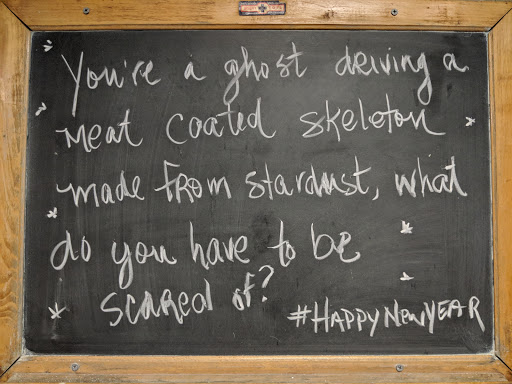 You're a ghost driving a
meat coated skeleton
made from stardust, what
do you have to be
scared of?
#HAPPYNEWYEAR